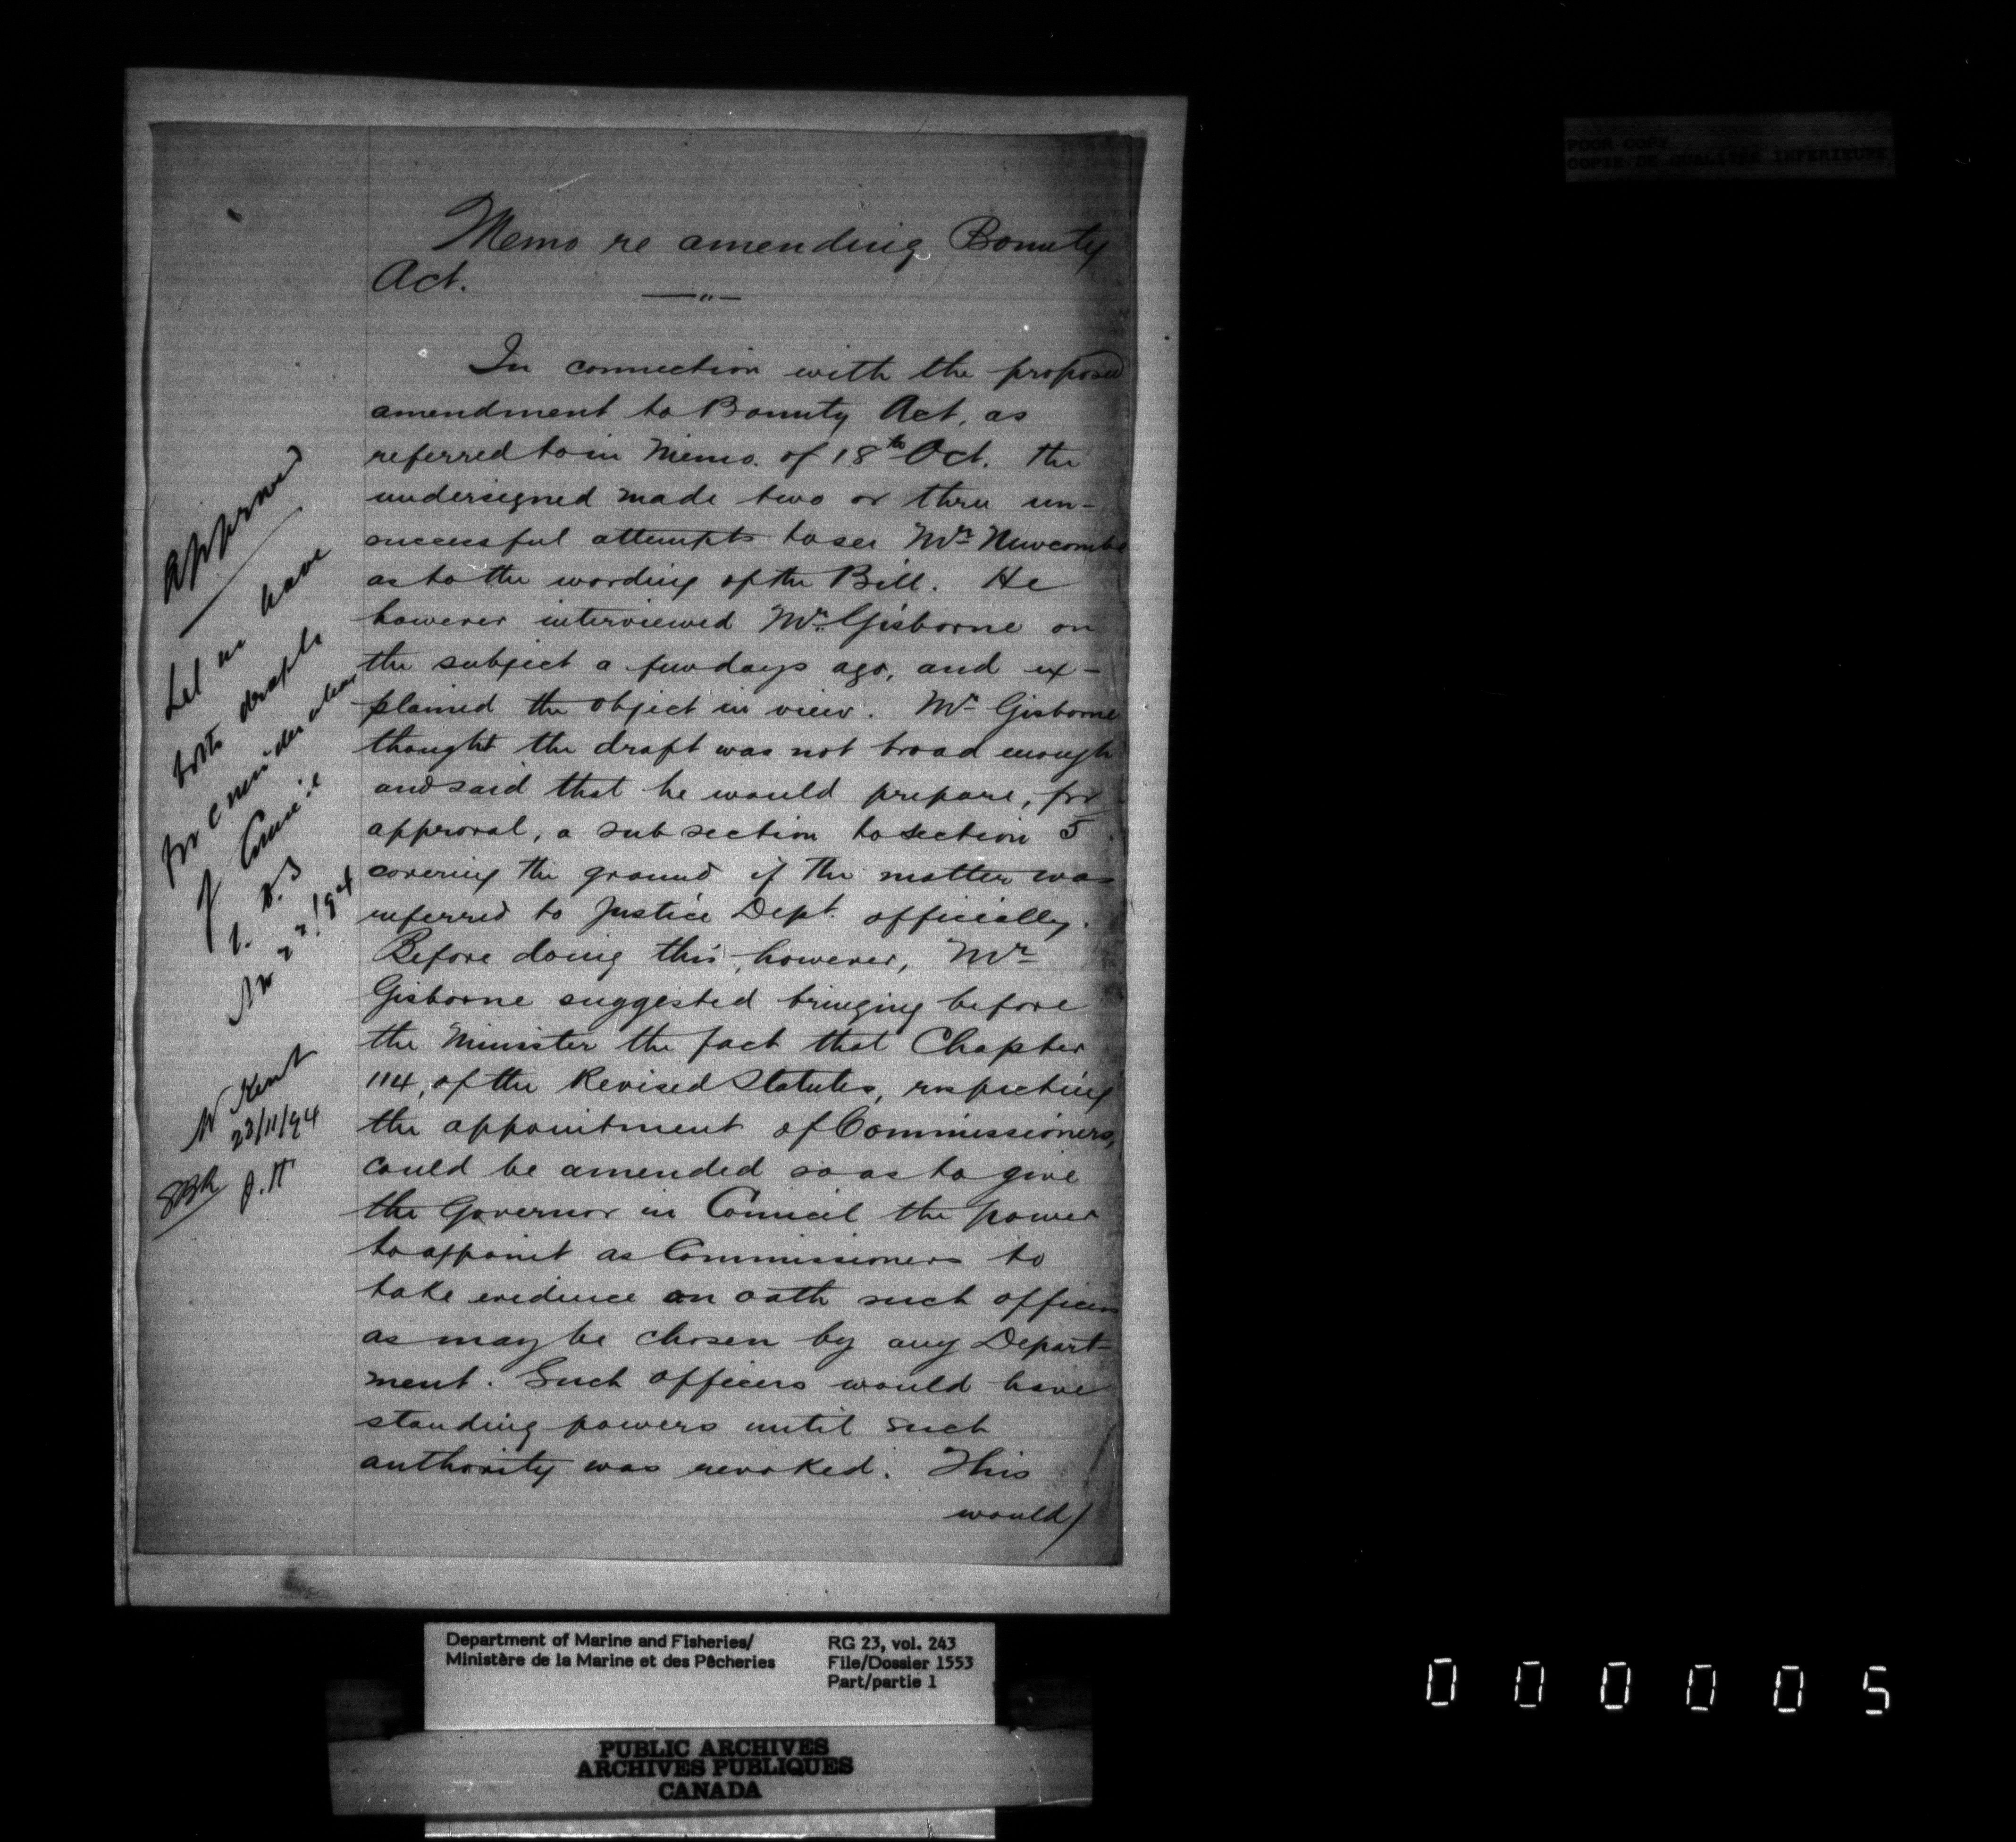 POOR COPY
COPIE DE QUALITEE INFERIEURE
Memo re amending Bounty
Act.
In connection with the proposed
amendment to Bounty Act, as
referred to in Memo. of 18th Oct. the
undersigned made two or three un-
successful attempts to see Mr Newcombe
as to the wording of the Bill. He
however interviewed Mr. Gisborne on
the subject a few days ago, and ex-
plained the object in view. Mr Gisborne
thought the draft was not broad enough
and said that he would prepare, for
approval, a sub section to section 5
covering the ground if the matter was
referred to Justice Dept. officially.
Before doing this, however, Mr
Gisborne suggested bringing before
the Minister the fact that Chapter
114, of the Revised Statutes, respecting
the appointment of Commissioners,
could be amended so as to give
the Governor in Council the power
to appoint as Commissioners to
take evidence on oath such officers
as may be chosen by any Depart-
ment. Such officers would have
standing powers until such
authority was revoked. This
would/
Approved
Let us have
both drafts
for consideration
of Council
Nov 22/94
Kent
23/11/94
J.H
Department of Marine and Fisheries/
Ministère de la Marine et des Pêcheries
RG 23, vol. 243
File/Dossier 1553
Part/partie 1
PUBLIC ARCHIVES
ARCHIVES PUBLIQUES
CANADA
000005